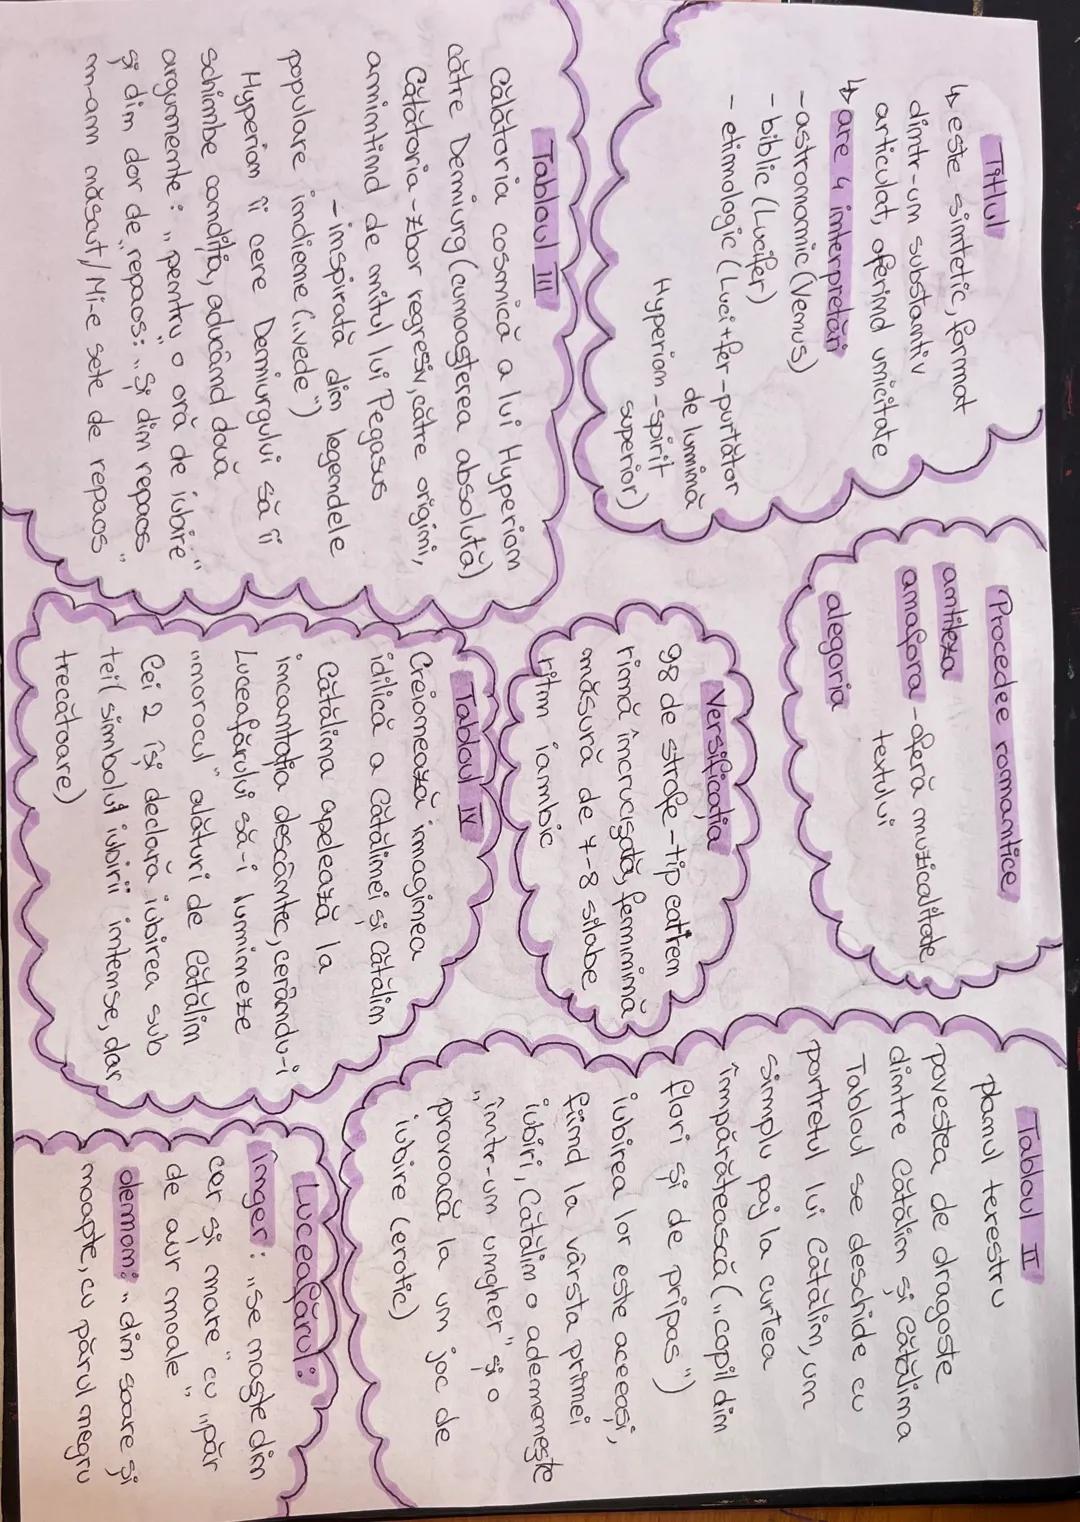 Titlul
↳ este sintetic, format
dintr-un substantiv
articulat, oferind unicitate
↳ are 4 interpretări
- astronomic (Venus)
- biblic (Lucifer)
- etimologic (Luci+fer-purtător
de lumină
Hyperion-spirit
superior)
Procedee romantice
antiteza
anafora - oferă muzicalitate
textului
alegoria
Tabloul II
planul terestru
povestea de dragoste
dintre Cătălin și Cătălina
Tabloul se deschide cu
portretul lui Cătălin, un
simplu paj la curtea
împărătească („copil din
flori și de pripas")
iubirea lor este aceeași,
fiind la vârsta primei
iubiri, Cătălin o ademenește
„într-un ungher" și o
provoacă la un joc de
iubire (erotic)
Versificația
98 de strofe-tip catren
rimă încrucișată, feminină
măsură de 7-8 silabe
ritm iambic
Tabloul III
Călătoria cosmică a lui Hyperion
către Demiurg (cunoașterea absolută)
Călătoria - zbor regresiv, către origini,
amintind de mitul lui Pegasus
- inspirată din legendele
populare indiene („vede")
Hyperion îi cere Demiurgului să îi
schimbe condiția, aducând două
argumente: „pentru o oră de iubire"
și din dor de „repaos: „Și din repaos
m-am născut/Mi-e sete de repaos"
Tabloul IV
Creionează imaginea
idilică a Cătălinei și Cătălin
Cătălina apelează la
incantația descântec, cerându-i
Luceafărului să-i lumineze
„norocul" alături de Cătălin
Cei 2 își declară iubirea sub
tei (simbolul iubirii intense, dar
trecătoare)
Luceafărul:
înger: „se naște din
cer și mare" cu „păr
de aur moale"
demon: „din soare și
noapte, cu părul negru